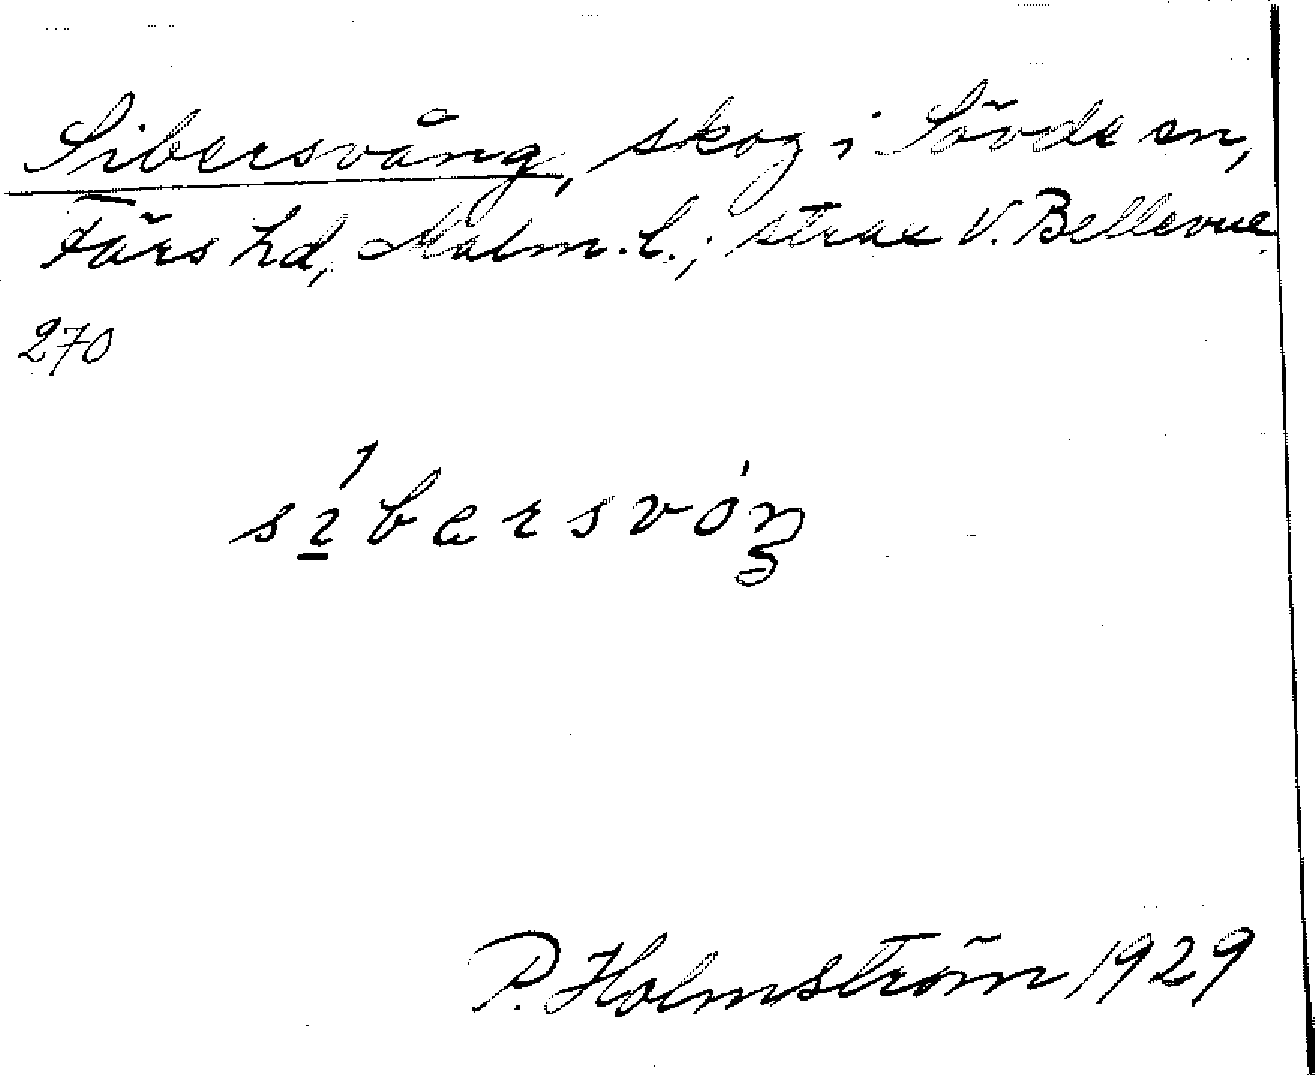 Sibersvång, skog i Sövde sn,
Färs hd, Malm. l.; strax V. Bellevue.
270
sı́bersvóŋ
P. Holmström 1929